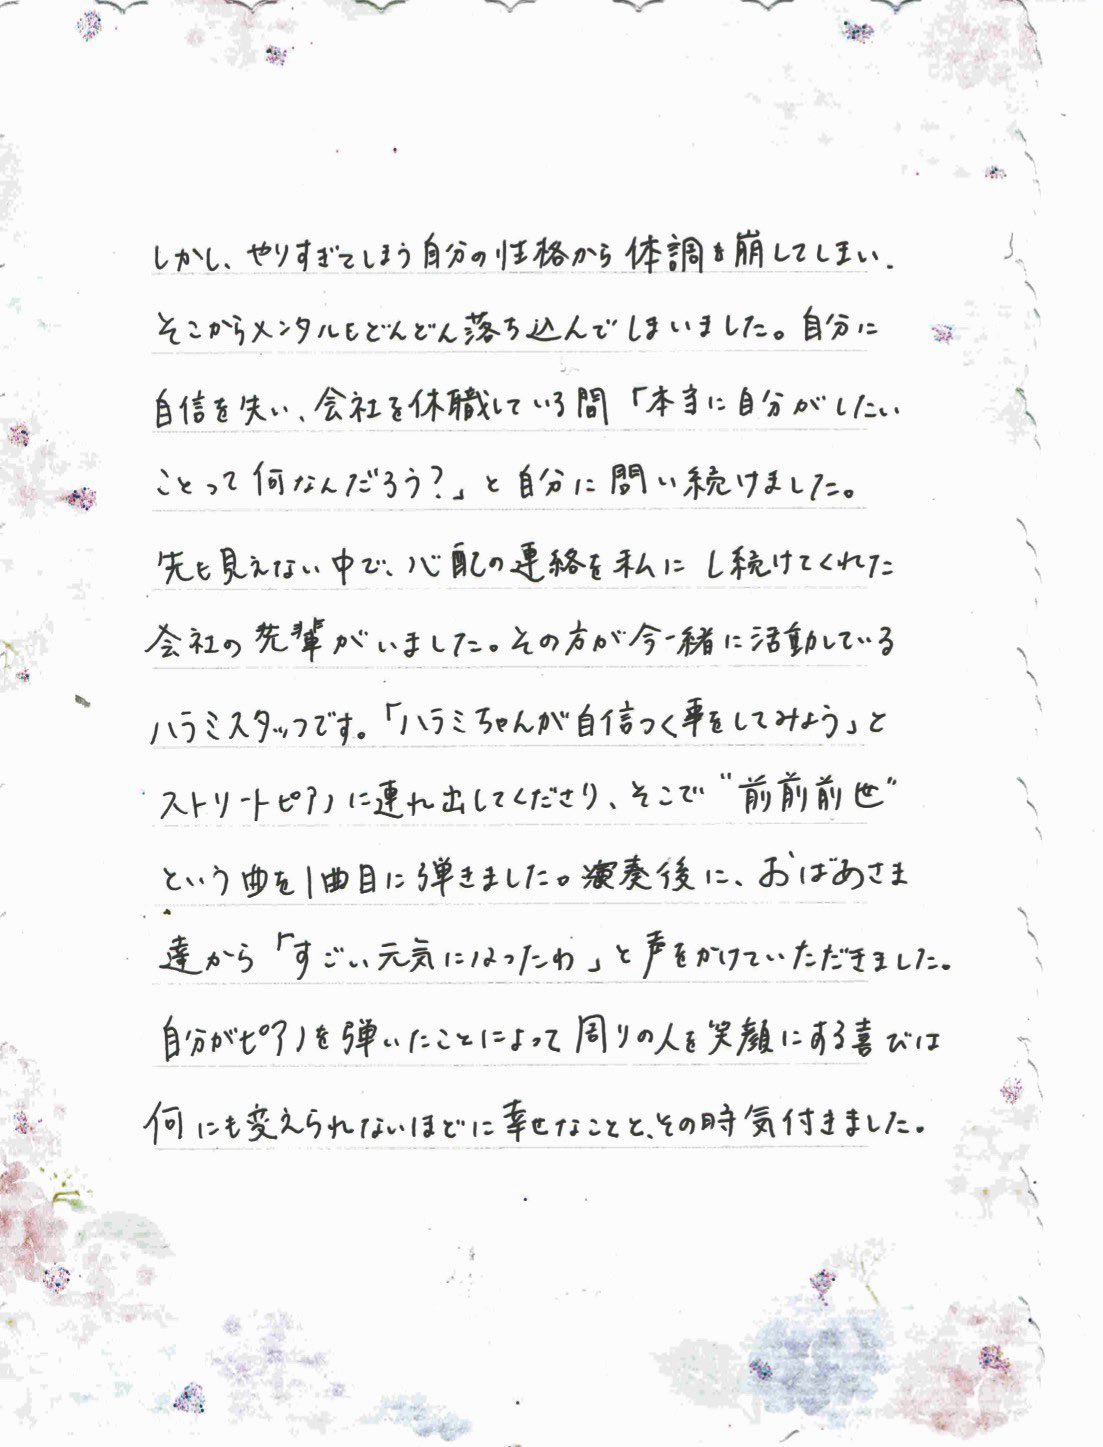 しかし、やりすぎてしまう自分の性格から体調を崩してしまい、
そこからメンタルもどんどん落ち込んでしまいました。自分に
自信を失い、会社を休職している間「本当に自分がしたい
ことって何なんだろう?」と自分に問い続けました。
先も見えない中で、心配の連絡を私にし続けてくれた
会社の先輩がいました。その方が今一緒に活動している
ハラミスタッフです。「ハラミちゃんが自信つく事をしてみよう」と
ストリートピアノに連れ出してくださり、そこで“前前前世”
という曲を1曲目に弾きました。演奏後に、おばあさま
達から「すごい元気になったわ」と声をかけていただきました。
自分がピアノを弾いたことによって周りの人を笑顔にする喜びは
何にも変えられないほどに幸せなことと、その時気付きました。